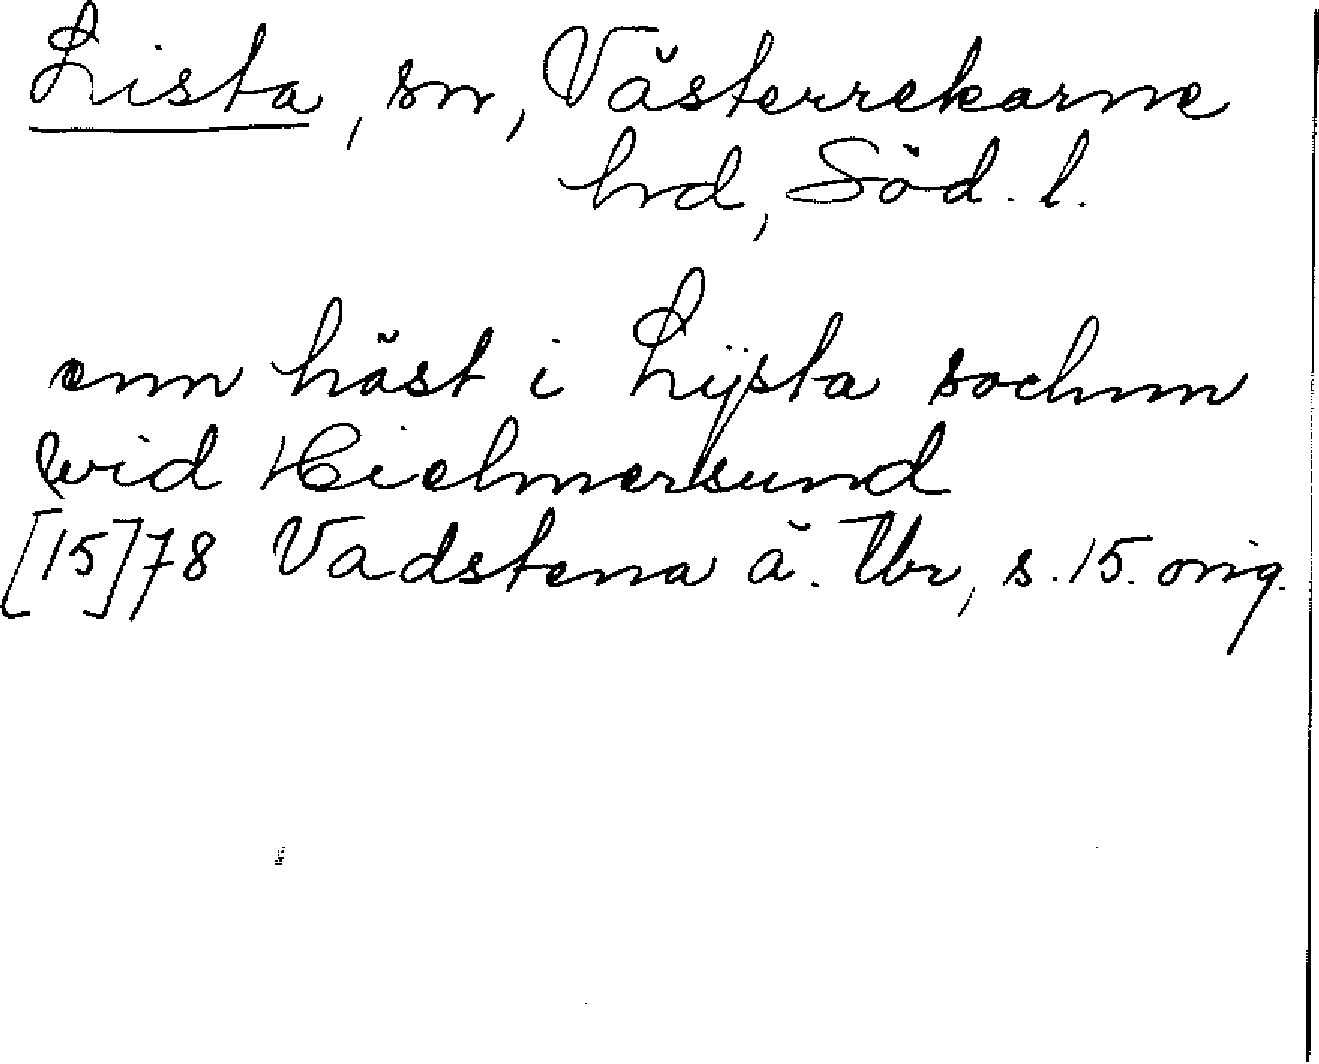 Lista, sn, Västerrekarne
hrd, Söd. l.
enn häst i Lijsta sochnn
wid Hielmersund
[15]78 Vadstena ä. tbr, s. 15. orig.